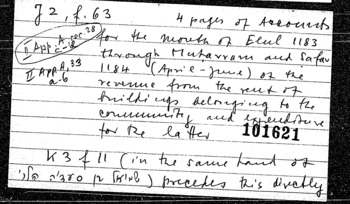 J 2, f. 63 4 pages of Accounts
II App A, doc 28 for the month of Elul 1183
c-18
through Muharram and Safar
II App B, 33 1184 (April - June) of the
a-b revenue from the rent of
buildings belonging to the
community and expenditure
for the latter 101621
K 3 f 11 (in the same hand of
) precedes this directly